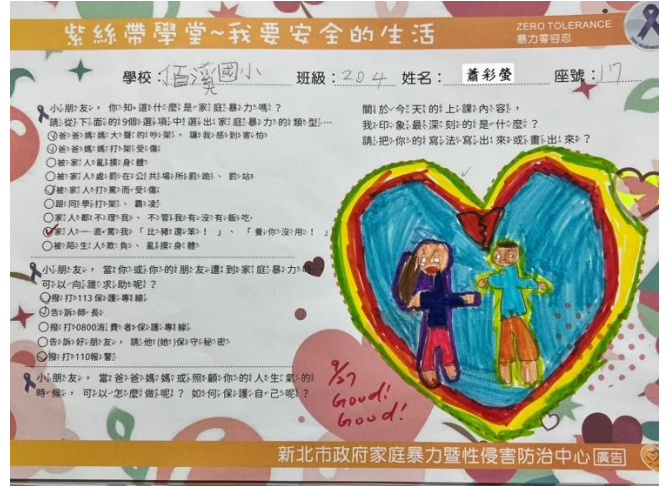 紫絲帶學堂~我要安全的生活
ZERO TOLERANCE
暴力零容忍
學校：佰溪國小 班級：204 姓名：蕭彩螢 座號：17
小朋友，你知道什麼是家庭暴力嗎？
請從下面的9個選項中選出家庭暴力的類型…
爸爸媽媽大聲的吵架，讓我感到害怕
爸爸媽媽打架受傷
被家人亂摸身體
被家人處罰在公共場所罰跪、罰站
被家人打罵而受傷
跟同學打架、霸凌
家人都不理我、不管我有沒有飯吃
家人一直罵我「比豬還笨！」、「養你沒用！」
被陌生人欺負、亂摸身體
小朋友，當你或你的朋友遭到家庭暴力時
可以向誰求助呢？
撥打113保護專線
告訴師長
撥打0800消費者保護專線
告訴好朋友，請他(她)保守秘密
撥打110報警
小朋友，當爸爸媽媽或照顧你的人生氣的
時候，可以怎麼做呢？如何保護自己呢？
關於今天的上課內容，
我印象最深刻的是什麼？
請把你的寫法寫出來或畫出來？
9/27
Good!
Good!
新北市政府家庭暴力暨性侵害防治中心 廣告